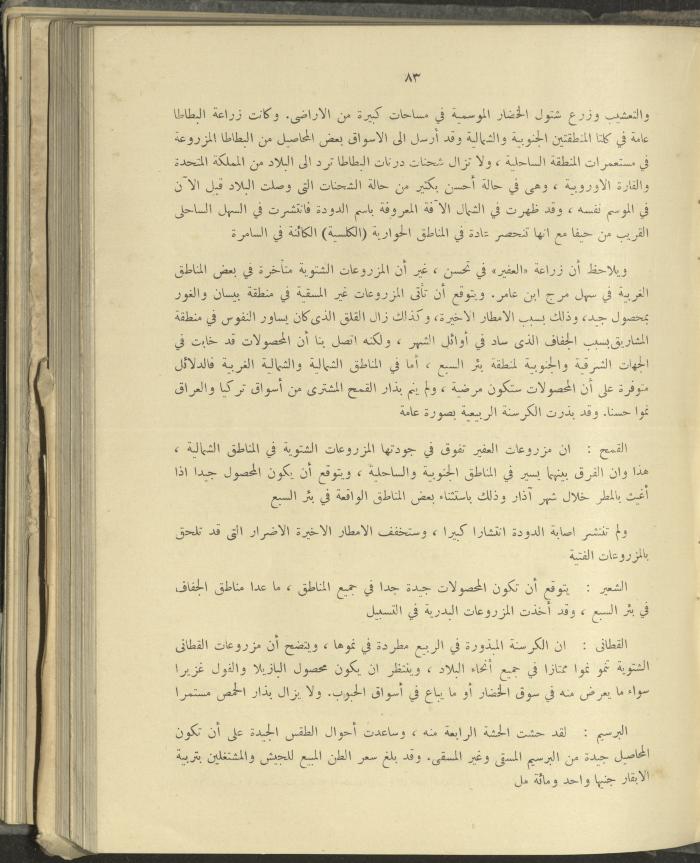 ٨٣
والتعشيب وزرع شتول الخضار الموسمية في مساحات كبيرة من الاراضى. وكانت زراعة البطاطا
عامة في كلتا المنطقتين الجنوبية والشمالية وقد أرسل الى الاسواق بعض المحاصيل من البطاطا المزروعة
في مستعمرات المنطقة الساحلية ، ولا تزال شحنات درنات البطاطا ترد الى البلاد من المملكة المتحدة
والقارة الاوروبية ، وهى في حالة أحسن بكثير من حالة الشحنات التى وصلت البلاد قبل الآن
في الموسم نفسه ، وقد ظهرت في الشمال الآفة المعروفة باسم الدودة فانتشرت في السهل الساحلى
القريب من حيفا مع انها تنحصر عادة في المناطق الحوارية (الكلسية) الكائنة في السامرة
ويلاحظ أن زراعة «العفير» في تحسن ، غير أن المزروعات الشتوية متأخرة في بعض المناطق
الغربية في سهل مرج ابن عامر. ويتوقع أن تأتى المزروعات غير المسقية في منطقة بيسان والغور
بمحصول جيد، وذلك بسبب الامطار الاخيرة، وكذلك زال القلق الذى كان يساور النفوس في منطقة
المشاريق بسبب الجفاف الذى ساد في أوائل الشهر ، ولكنه اتصل بنا أن المحصولات قد خابت في
الجهات الشرقية والجنوبية لمنطقة بئر السبع ، أما في المناطق الشمالية والشمالية الغربية فالدلائل
متوفرة على أن المحصولات ستكون مرضية ، ولم ينم بذار القمح المشترى من أسواق تركيا والعراق
نموا حسنا. وقد بذرت الكرسنة الربيعية بصورة عامة
القمح : ان مزروعات العفير تفوق في جودتها المزروعات الشتوية في المناطق الشمالية ،
هذا وان الفرق بينهما يسير في المناطق الجنوبية والساحلية ، ويتوقع أن يكون المحصول جيدا اذا
أغيث بالمطر خلال شهر آذار وذلك باستثناء بعض المناطق الواقعة في بئر السبع
ولم تنتشر اصابة الدودة انتشارا كبيرا ، وستخفف الامطار الاخيرة الاضرار التى قد تلحق
بالمزروعات الفتية
الشعير : يتوقع أن تكون المحصولات جيدة جدا في جميع المناطق ، ما عدا مناطق الجفاف
في بئر السبع ، وقد أخذت المزروعات البدرية في التسبيل
القطانى : ان الكرسنة المبذورة في الربيع مطردة في نموها ، ويتضح أن مزروعات القطانى
الشتوية تنمو نموا ممتازا في جميع أنحاء البلاد ، وينتظر ان يكون محصول البازيلا والفول غزيرا
سواء ما يعرض منه في سوق الخضار أو ما يباع في أسواق الحبوب. ولا يزال بذار الحمص مستمرا
البرسيم : لقد حشت الحشة الرابعة منه ، وساعدت أحوال الطقس الجيدة على أن تكون
المحاصيل جيدة من البرسيم المسقى وغير المسقى. وقد بلغ سعر الطن المبيع للجيش والمشتغلين بتربية
الابقار جنيها واحد ومائة مل